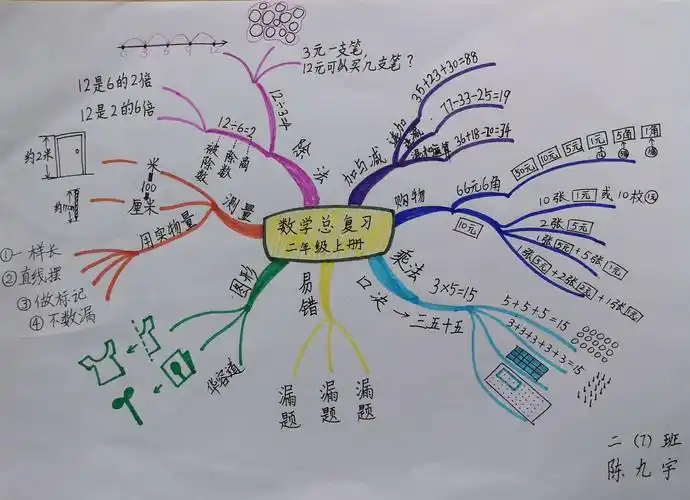 数学总复习
二年级上册
除法
12÷3=4
3元一支笔,
12元可以买几支笔?
0 3 6 9 12
12÷6=2
被除数
除数
商
12是6的2倍
12是2的6倍
测量
米
100
厘米
约2米
用实物量
①一样长
②直线摆
③做标记
④不数漏
图形
华容道
易错
漏题
漏题
漏题
乘法
口决 → 三五十五
3×5=15
5+5+5=15
3+3+3+3+3=15
购物
66元6角
50元 10元 5元 1元 5角 1角
10元
10张1元或10枚
2张5元
1张5元+5张1元
1张5元+2张2元+1张1元
加与减
连加
35+23+30=88
连减
77-33-25=19
混和运算
36+18-20=34
二(7)班
陈九宇